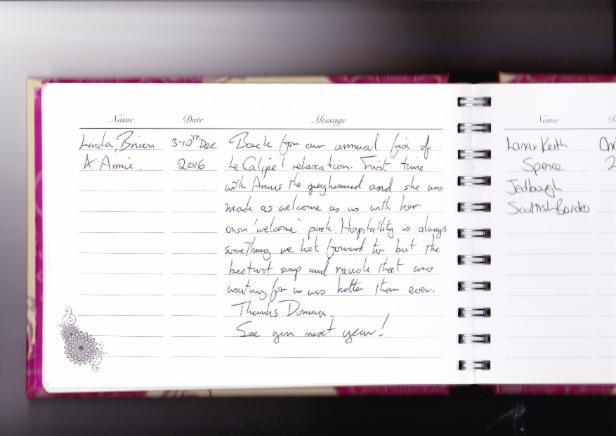 Name Date Message
Linda, Brian 3-10th Dec Back for our annual fix of
& Annie. 2016 Le Calipel relaxation. First time
with Annie the greyhound and she was
made as welcome as us with her
own 'welcome' pack. Hospitality is always
something we look forward to but the
beetroot soup and ravioli that was
waiting for us was better than ever.
Thanks
See you next year!
Name
Keith
Spence
Jedburgh
Scottish Borders